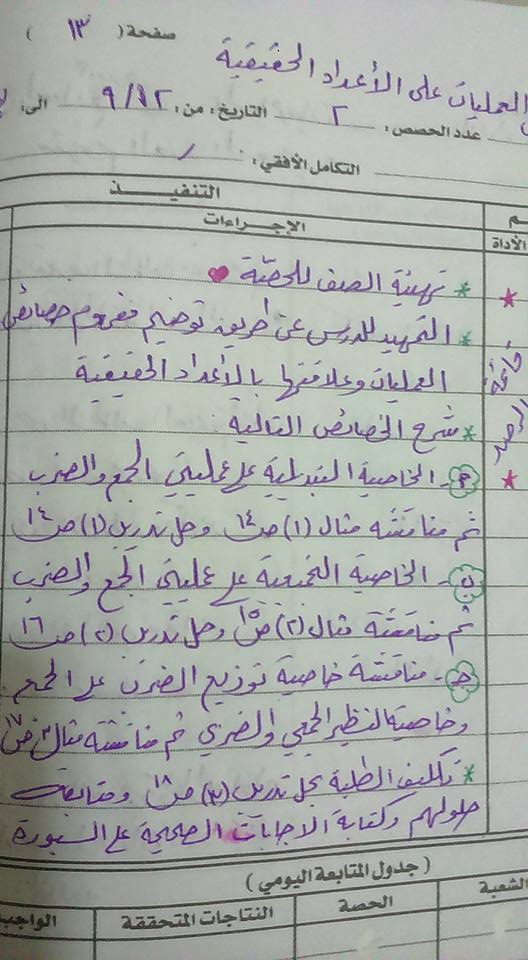 صفحة ( ١٣ )
العمليات على الأعداد الحقيقية
عدد الحصص: ٢ التاريخ: من: ٩/١٢ الى:
التكامل الأفقي: /
التنفيــــذ
الأداة الإجــراءات
* * تهيئة الصف للحصّة
* التمهيد للدرس عن طريق توضيح مفهوم خصائص
العمليات وعلاقتها بالأعداد الحقيقية
* شرح الخصائص التالية
* - الخاصية التبديلية على عمليتي الجمع والضرب
ثم مناقشة مثال (١) ص١٤ وحل تدريب (١) ص١٤
ب - الخاصية التجميعية على عمليتي الجمع والضرب
ثم مناقشة مثال (٢) ص١٥ وحل تدريب (٢) ص١٦
جـ - مناقشة خاصية توزيع الضرب على الجمع
وخاصية النظير الجمعي والضربي ثم مناقشة مثال ٣ ص١٧
* تكليف الطلبة بحل تدريب (٣) ص١٨ ومتابعة
حلولهم وكتابة الاجابات الصحيحة على السبورة
( جدول المتابعة اليومي )
الشعبة الحصة النتاجات المتحققة الواجب